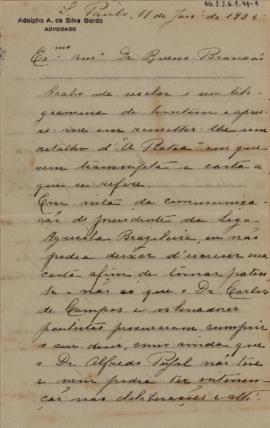 Adolpho A. da Silva Gordo
ADVOGADO
S. Paulo, 11 de Jan.º de 1926
Ex.mo am.º Dr Bueno Brandão
Acabo de receber o seu tele-
gramma de hontem e apres-
so-me em remetter-lhe um
retalho d'"A Platéa" em que
vem transcripta a carta a
que se refere.
Em vista da communica-
ção do presidente da Liga
Agricola Brasileira, eu não
podia deixar d'escrever essa
carta afim de tornar paten-
te - não só que o Dr Carlos
de Campos e os senadores
paulistas procuraram cumprir
o seu dever, como ainda que
o Dr Alfredo Pujol não teve
e nem podia ter interven-
ção nas deliberações e